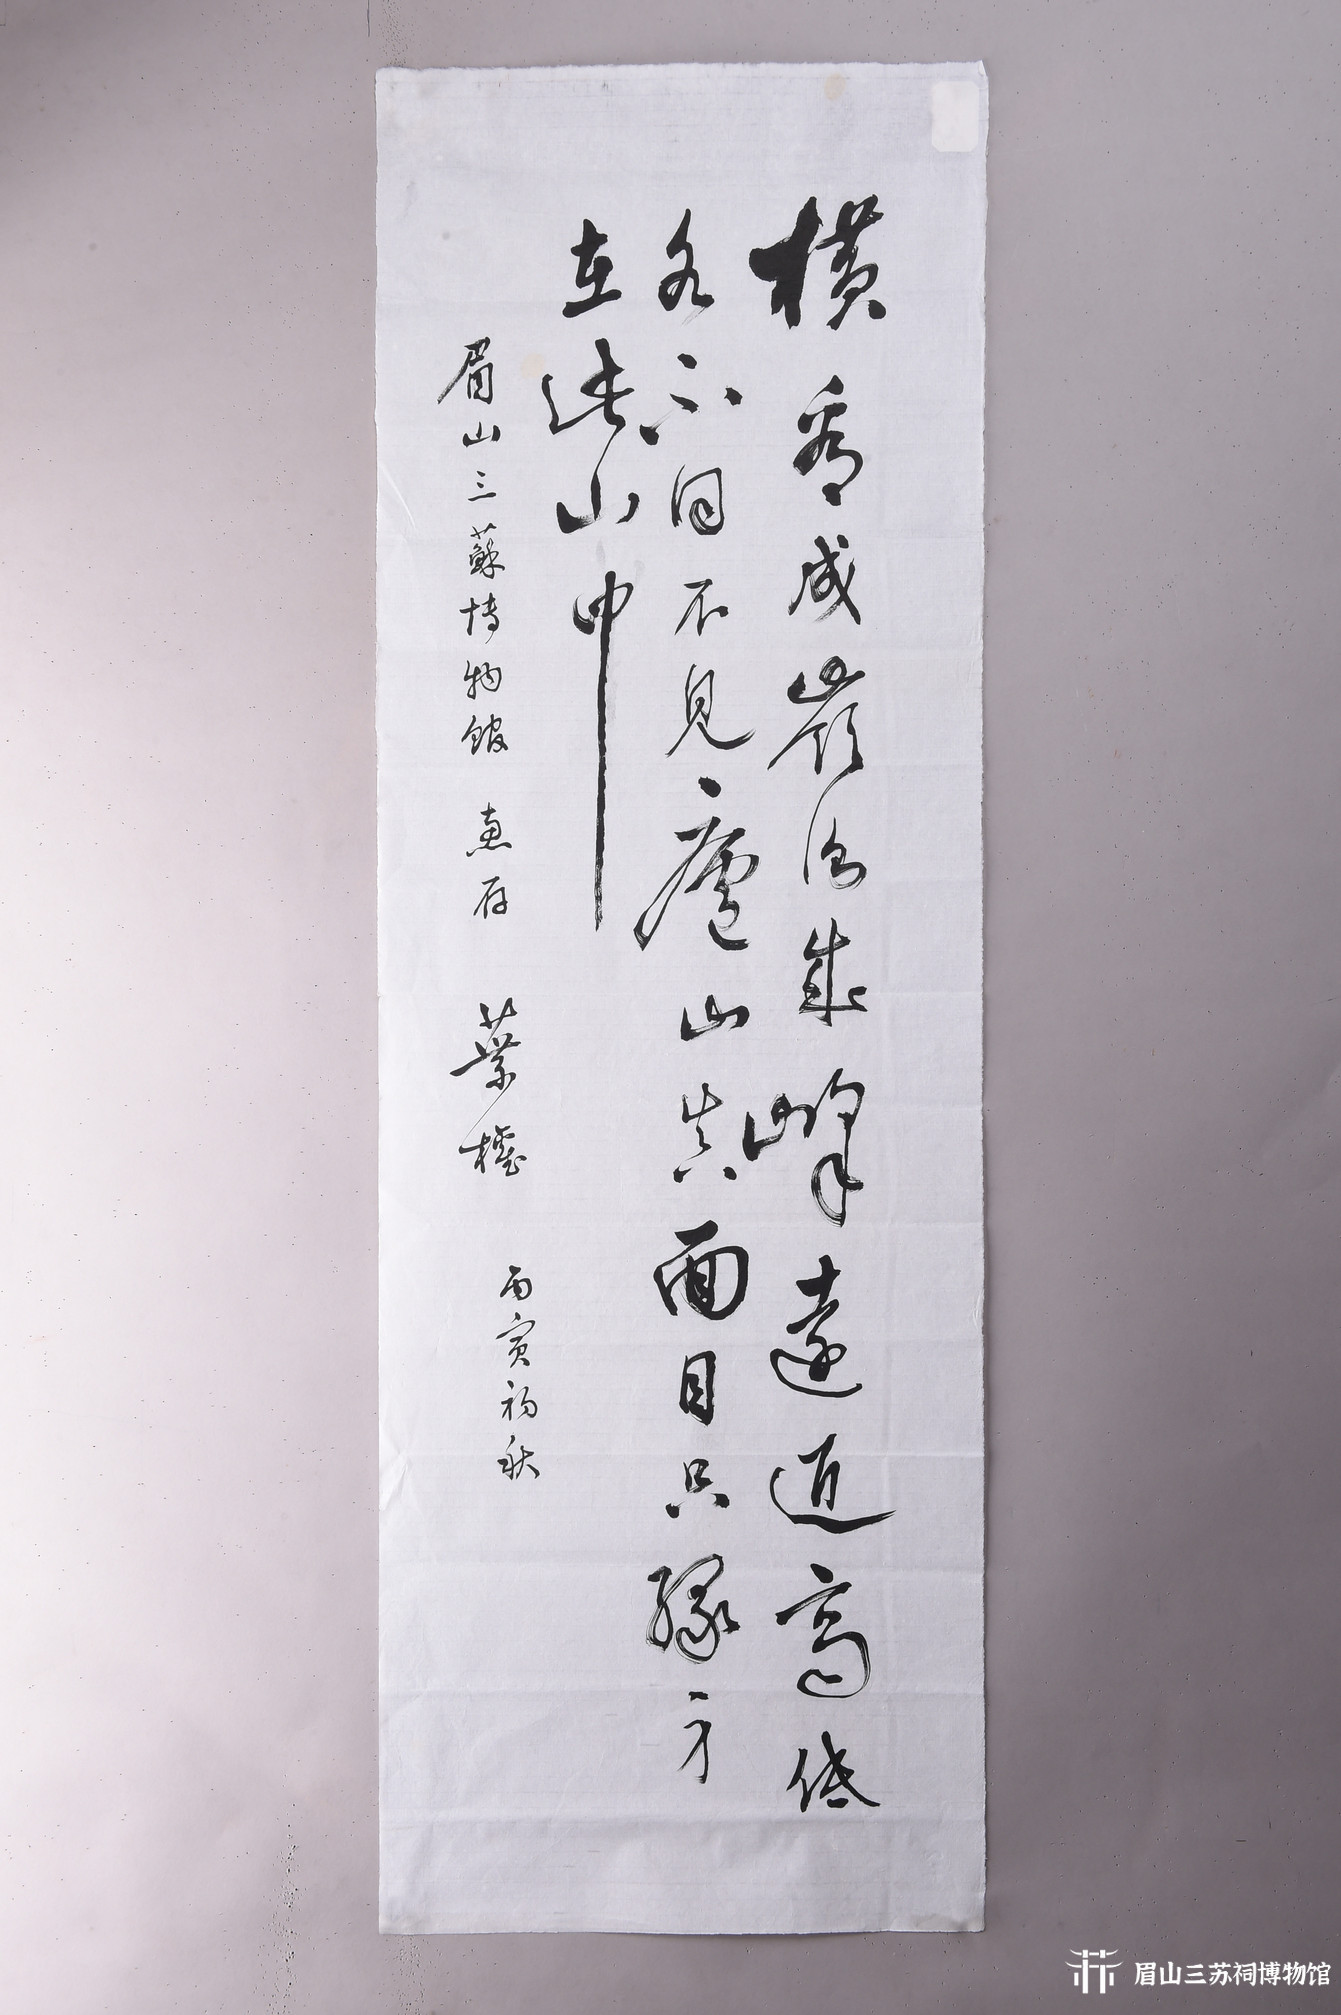 橫看成嶺側成峰遠近高低
各不同不見廬山真面目只緣身
在此山中
眉山三蘇博物館 惠存 葉
丙寅初秋
眉山三苏祠博物馆